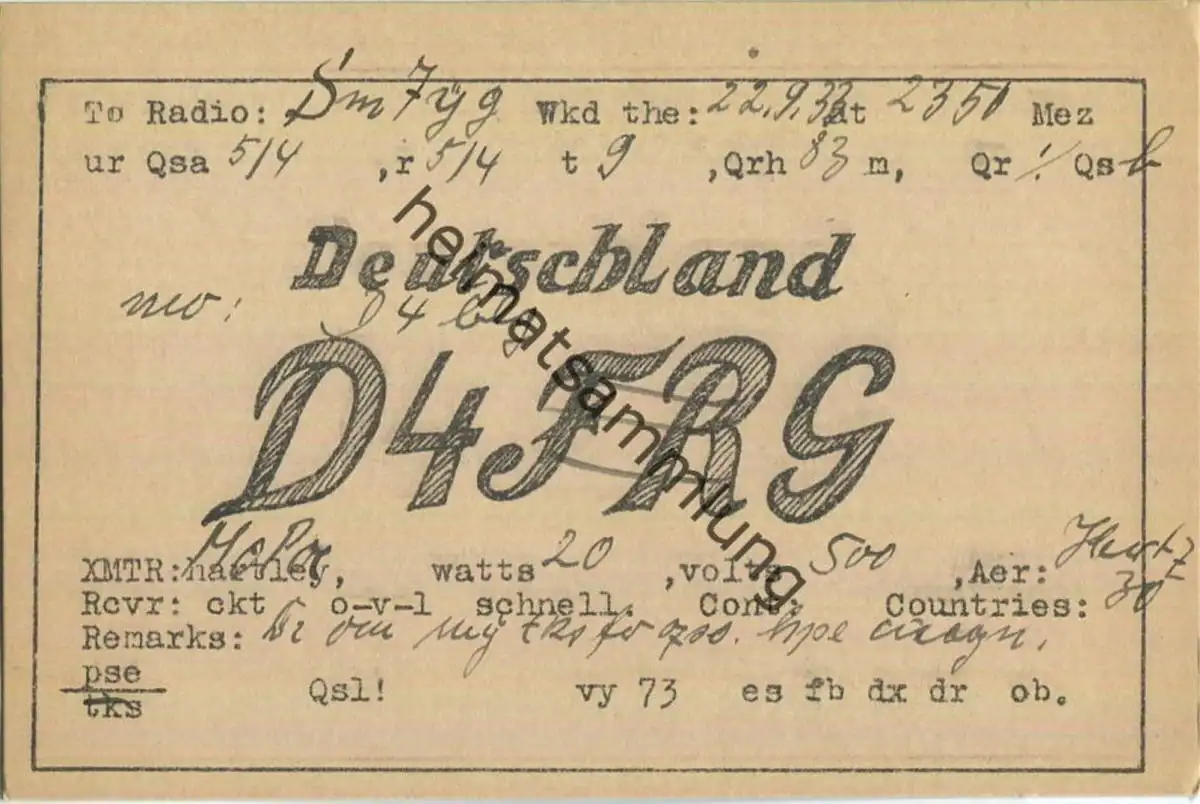 To Radio: Sm7yg Wkd the: 22.9.33 at 2350 Mez
ur Qsa 5/4 ,r 5/4 t 9 ,Qrh 83 m, Qr Qsb
Deutschland
nw: D4
D4FRG
XMTR: hartley, watts 20 ,volts 500 ,Aer: Hertz
Rcvr: ckt o-v-1 schnell. Cont: Countries: 30
Remarks: Dr om my tks fo qso. hpe cuagn.
pse
tks Qsl! vy 73 es fb dx dr ob.
heimatsammlung